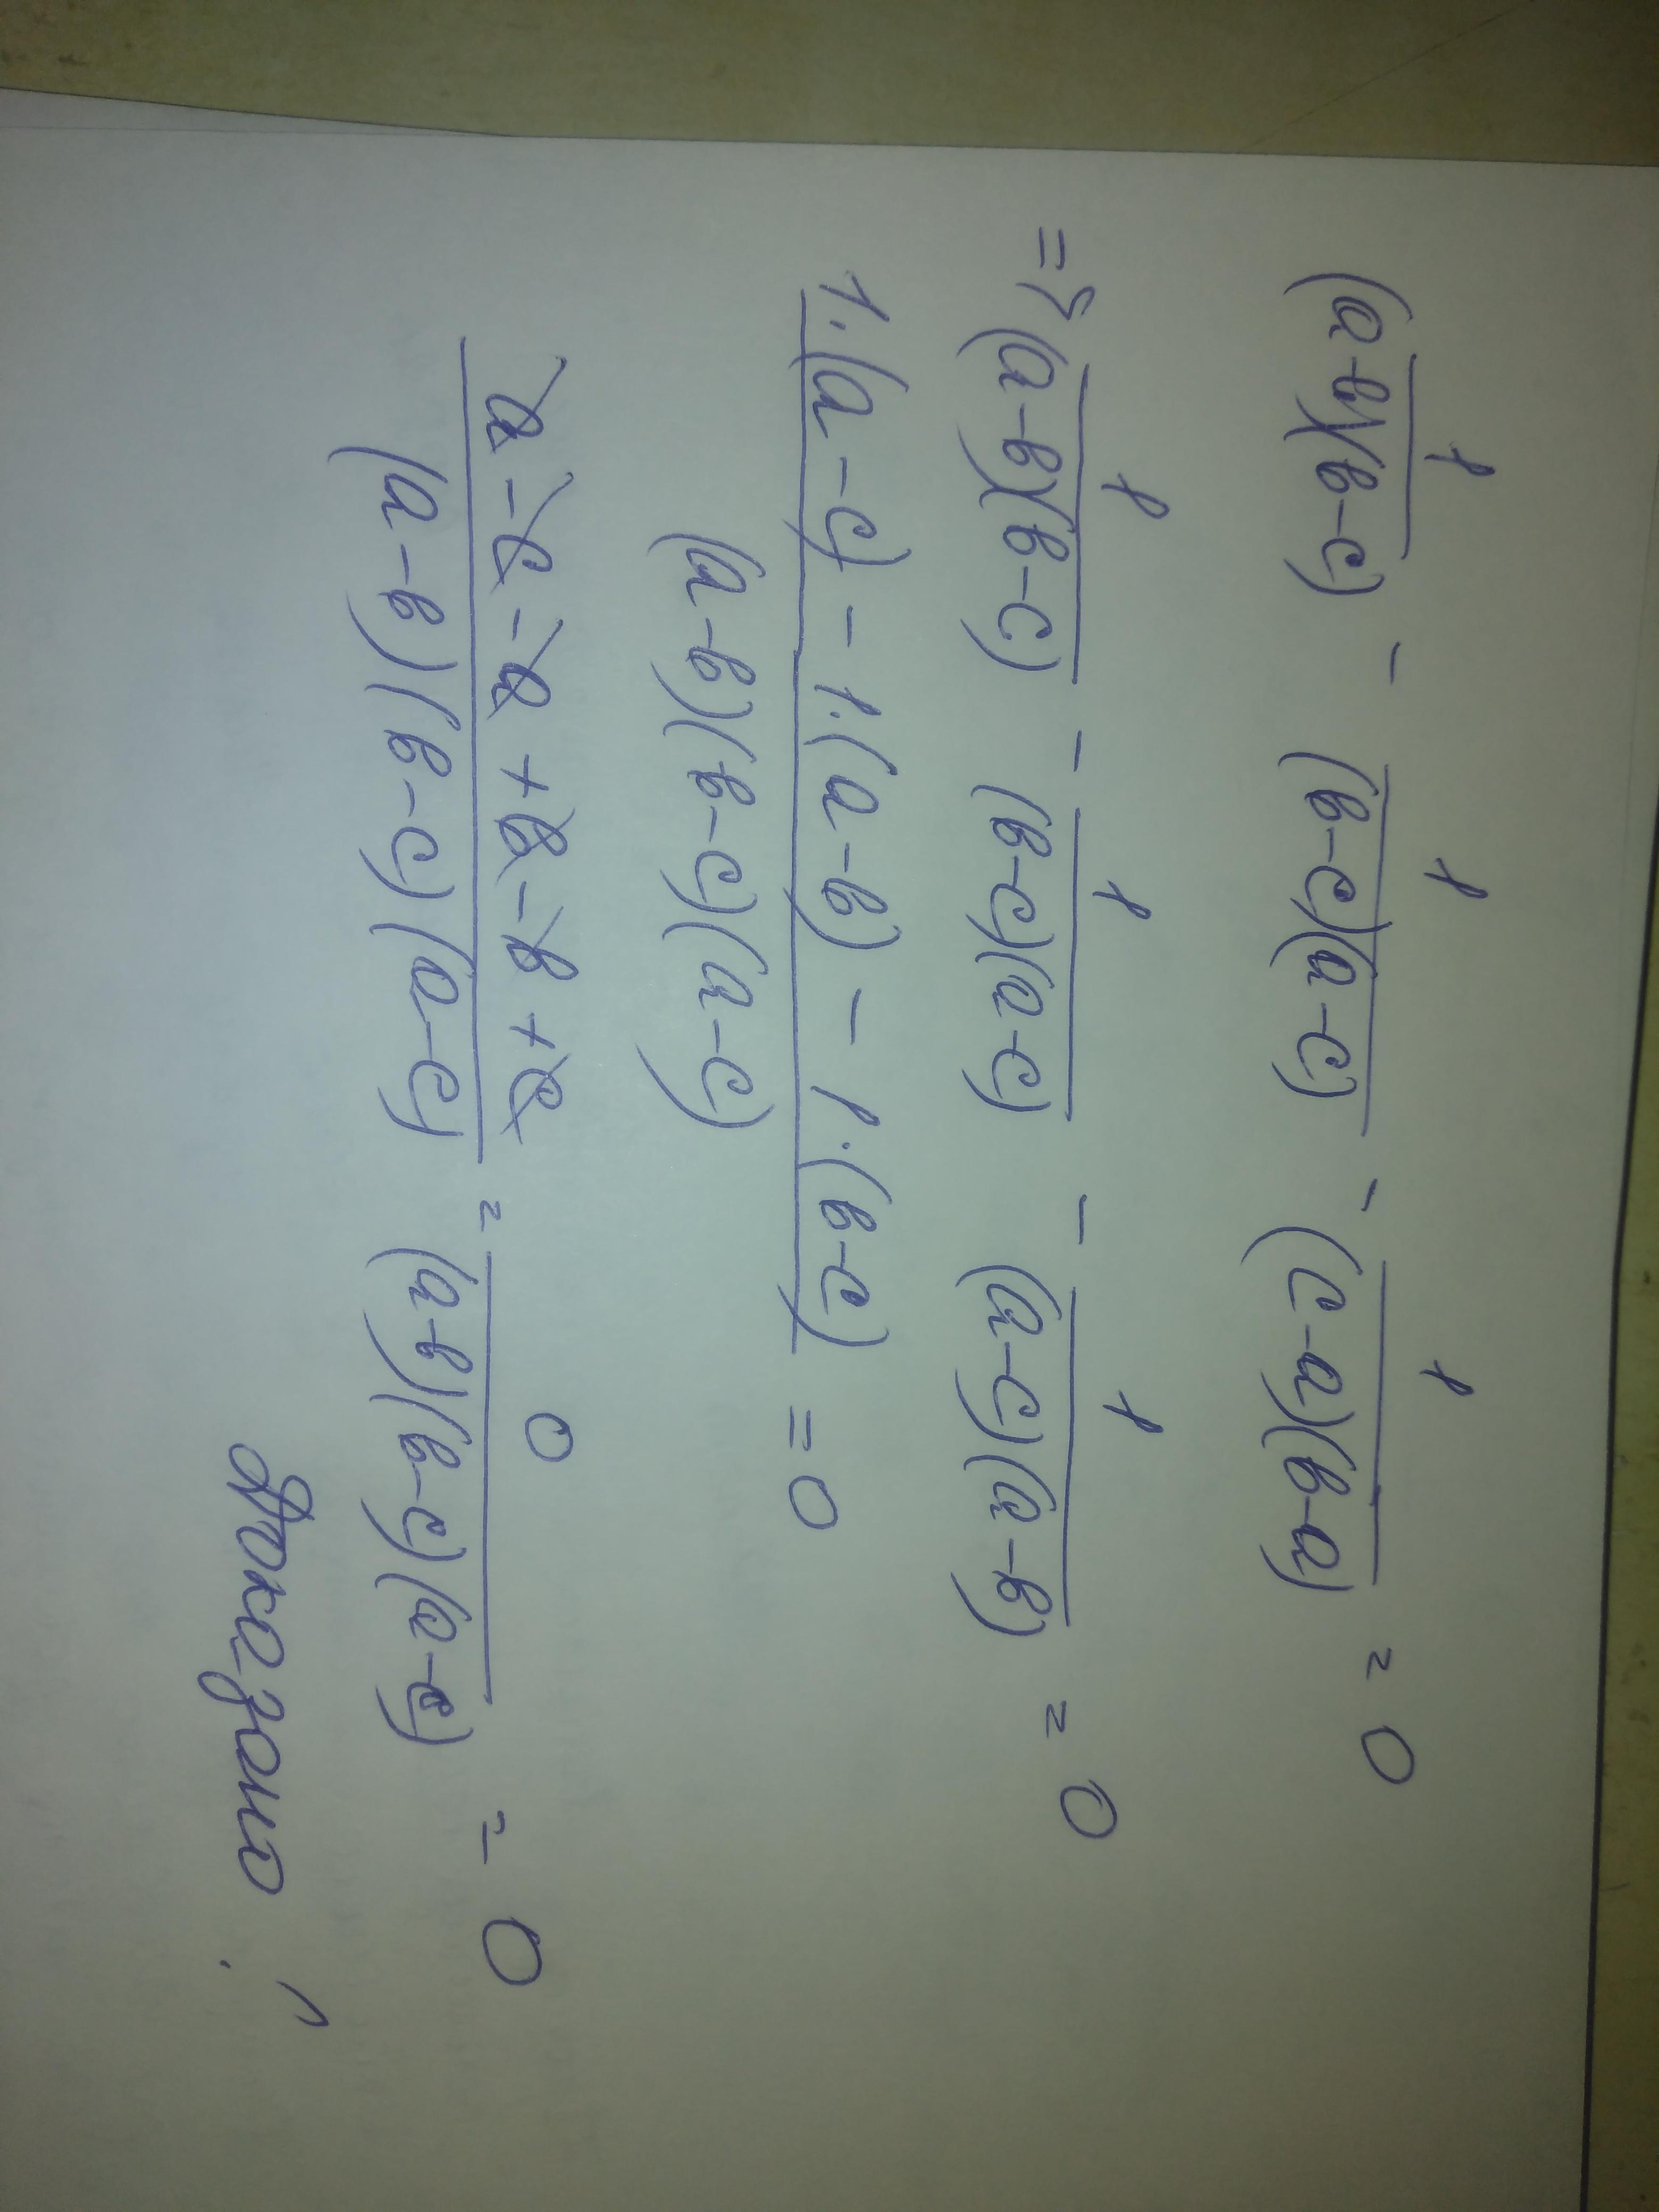 1/((a-b)(b-c)) - 1/((b-c)(a-c)) - 1/((c-a)(b-a)) = 0
=> 1/((a-b)(b-c)) - 1/((b-c)(a-c)) - 1/((a-c)(a-b)) = 0
(1·(a-c) - 1·(a-b) - 1·(b-c))/((a-b)(b-c)(a-c)) = 0
(a-c-a+b-b+c)/((a-b)(b-c)(a-c)) = 0/((a-b)(b-c)(a-c)) = 0
Доказано!